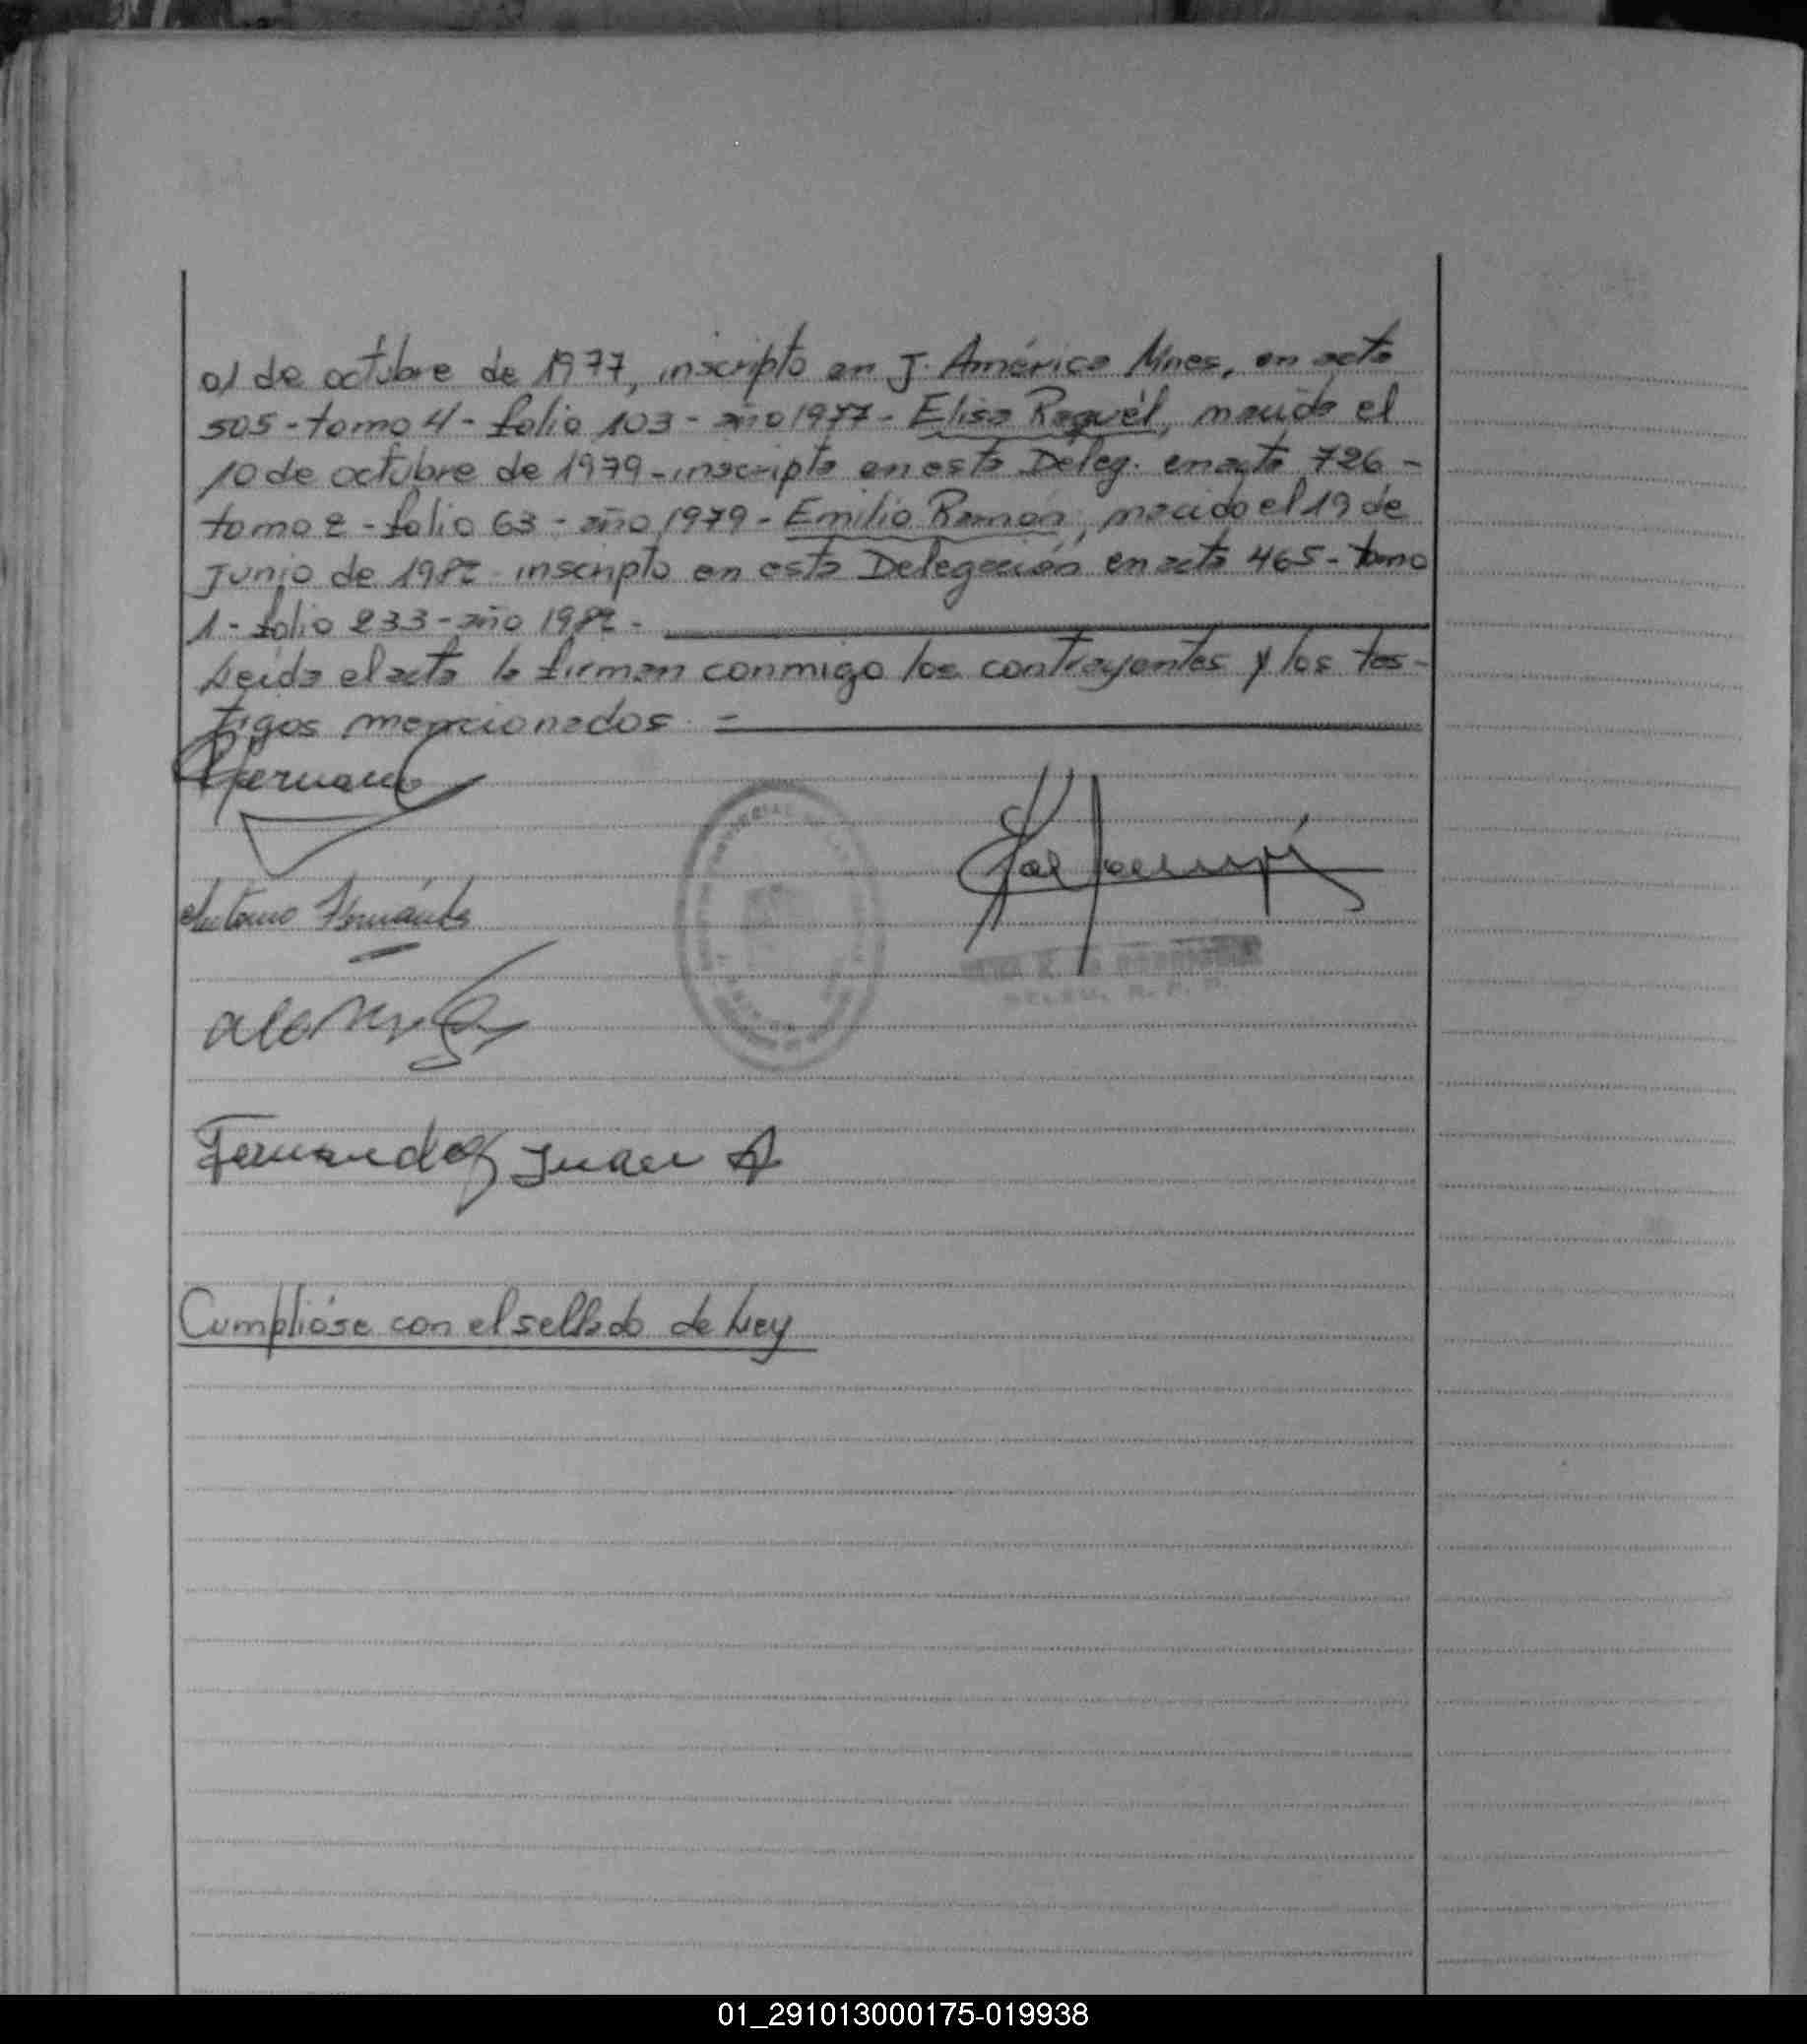 01 de octubre de 1977, inscripto en J. América Mnes, en acta
505 - tomo 4 - folio 103 - año 1977 - Elisa Raquél, nacida el
10 de octubre de 1979 - inscripta en esta Deleg. en acta 726 -
tomo 2 - folio 63 - año 1979 - Emilio Ramón, nacido el 19 de
junio de 1982 inscripto en esta Delegación en acta 465 - tomo
1 - folio 233 - año 1982 -
Leída el acta la firman conmigo los contrayentes y los tes-
tigos mencionados. -
Antonio Fernández
Fernandez Juan A
Cumplióse con el sellado de Ley
01_291013000175-019938